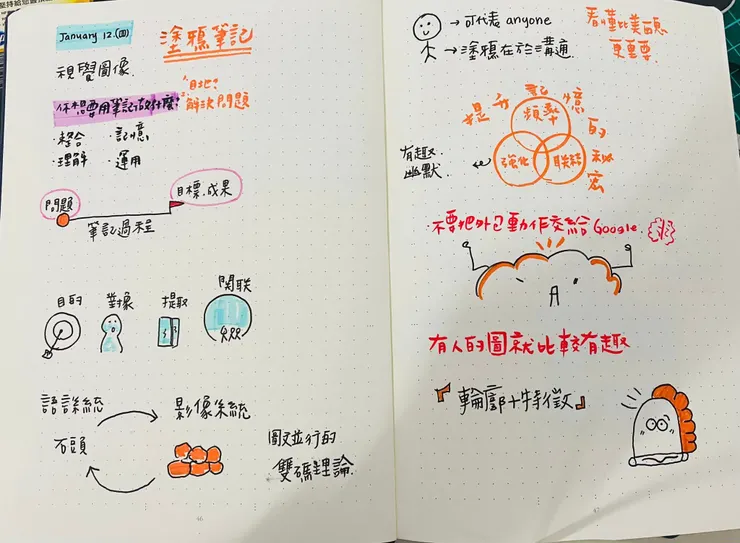 January 12.(四)
塗鴉筆記
視覺圖像.
你想要用筆記做什麼?
目地?
解決問題
・整合 ・記憶
・理解 ・運用
問題
目標.成果
筆記過程
目的 對像 提取 関联
系統 影像系統
石頭
圖文並行的
雙碼理論.
→可代表 anyone
→塗鴉在於溝通
看懂比美醜
更重要.
提升記憶的秘密
頻率
強化 联結
有趣.
幽默
・不要把外包動作交給Google.
有人的圖就比較有趣
『輪廓+特徵』